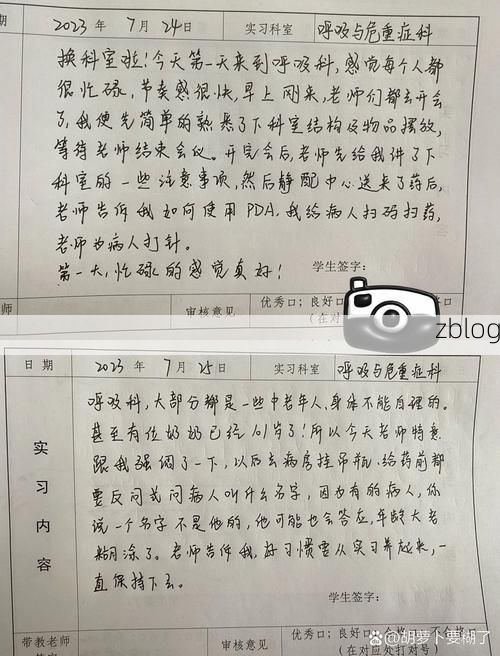 期 2023 年 7 月 24 日 实习科室 呼吸与危重症科
换科室啦!今天第一天来到呼吸科,感觉每个人都
很忙碌,节奏感很快,早上刚来,老师们都去开会
了,我便先简单的熟悉了下科室结构及物品摆放,
等待老师结束会议。开完会后,老师先给我讲了下
科室的一些注意事项,然后静配中心送来了药后,
老师告诉我如何使用PDA,我给病人扫码扫药,
老师为病人打针。
第一天,忙碌的感觉真好!
学生签字:
师
审核意见
优秀口;良好口
(在对
口
zblog
日 期 2023 年 7 月 25 日 实习科室 呼吸与危重症科
实习内容
呼吸科,大部分都是一些中老年人,身体不能自理的。
甚至有位奶奶已经101岁了!所以今天老师特意
跟我强调了一下,以后去病房挂吊瓶、给药前都
要反问式问病人叫什么名字,因为有的病人,你
说一个名字不是他的,他可能也会答应,年龄大者
糊涂了。老师告诉我,好习惯要从实习养起来,一
直保持下去。
学生签字:
带教老师
审核意见
优秀口;良好口;合格口;不合格口
(在对应处打对号)
@胡萝卜要糊了